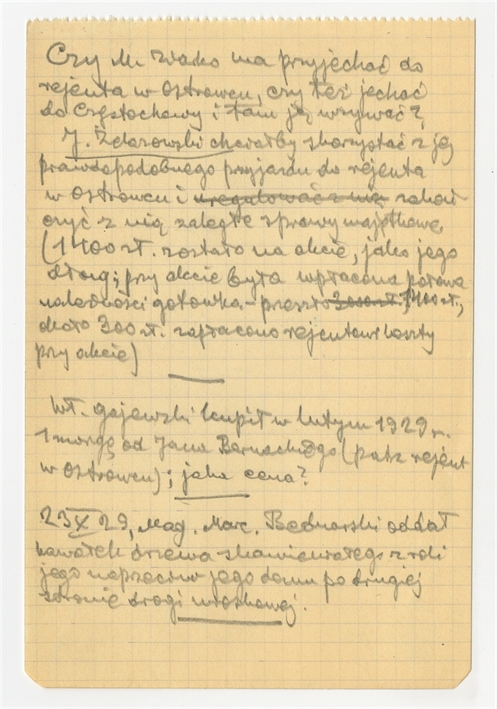 Czy M. Zwasko ma przyjechać do
rejenta w Ostrowcu, czy też jechać
do Częstochowy i tam ją wzywać?
J. Zdarowski chciałby skorzystać z jej
prawdopodobnego przyjazdu do rejenta
w Ostrowcu i uregulować z nią zakoń
czyć z nią zaległe sprawy majątkowe.
(1400 zł. zostało na akcie, jako jego
dług; przy akcie była wpłacona połowa
należności gotówką - przeszło 3000 zł. 1400 zł.,
około 300 zł. zapłacono rejentowi koszty
przy akcie)
Wł. Gajewski kupił w lutym 1929 r.
1 morgę od Jana Bernackiego (patrz rejent
w Ostrowcu); jaka cena?
23 X 29, Mag. Marc. Bednarski oddał
kawałek drzewa skamieniałego z roli
jego naprzeciw jego domu po drugiej
stronie drogi wioskowej.